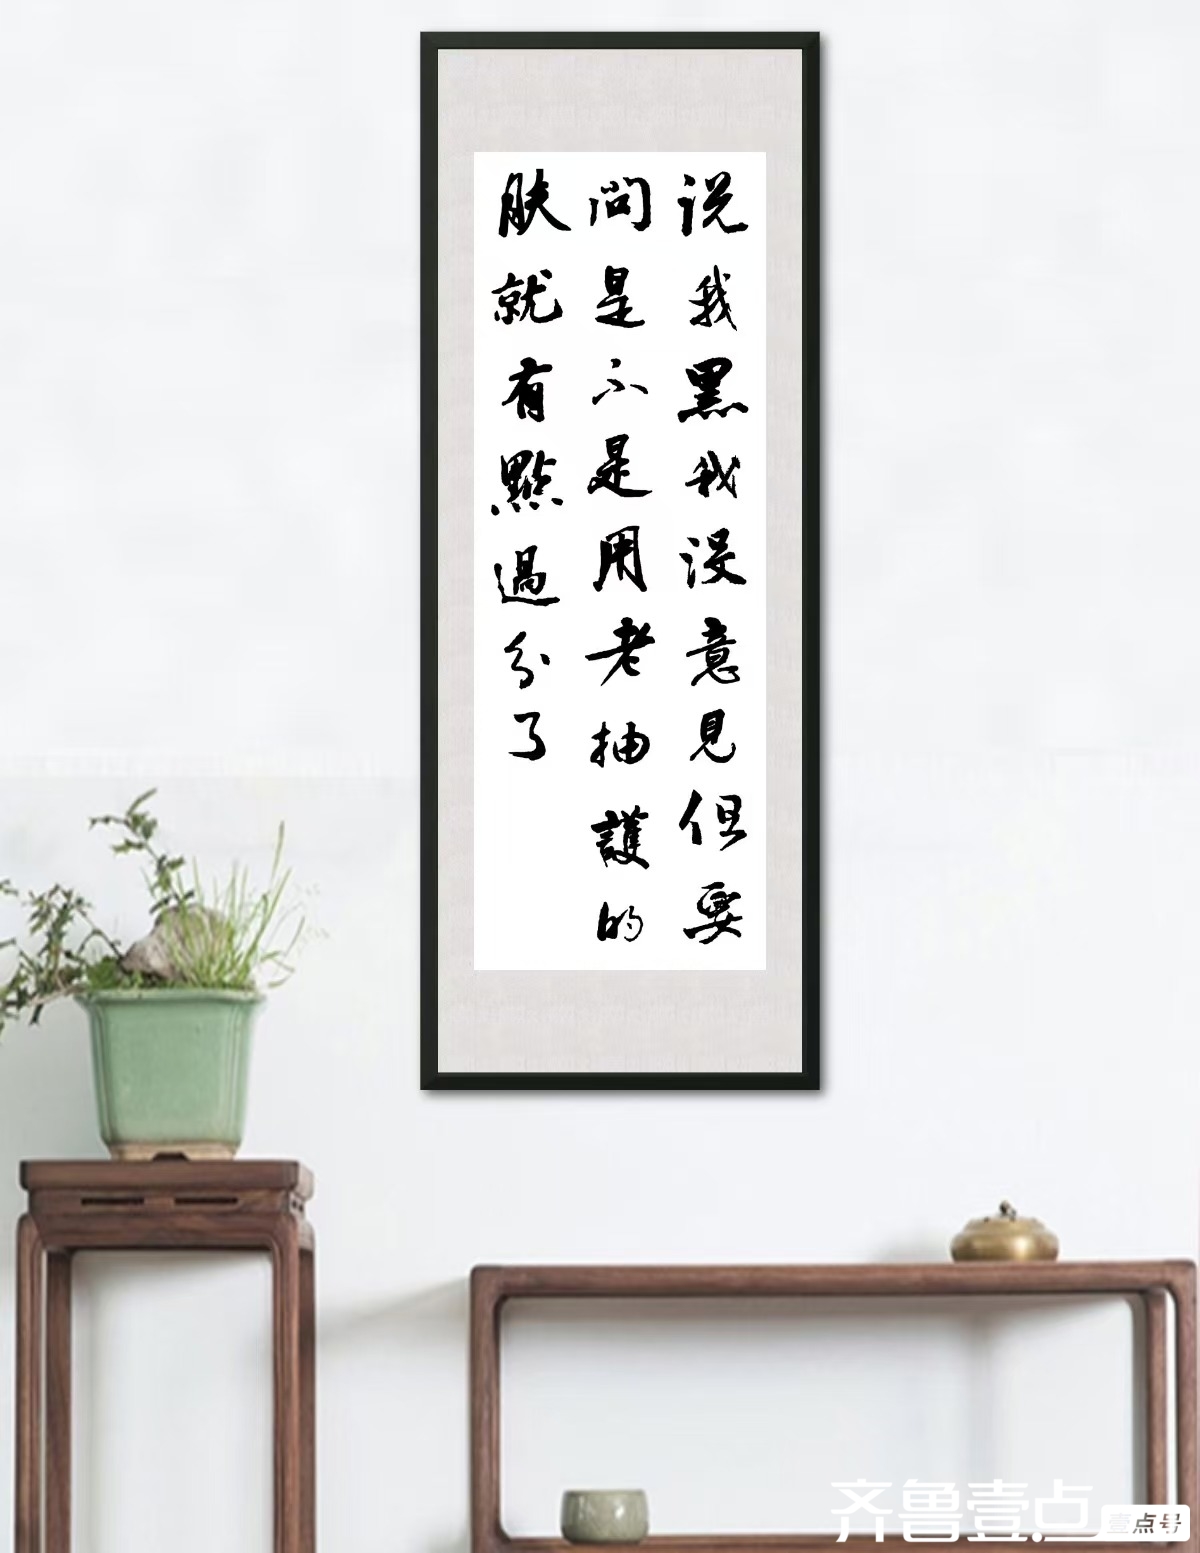 说我黑我没意見但要
问是不是用老抽護的
肤就有點過分了
齐鲁壹点
壹点号